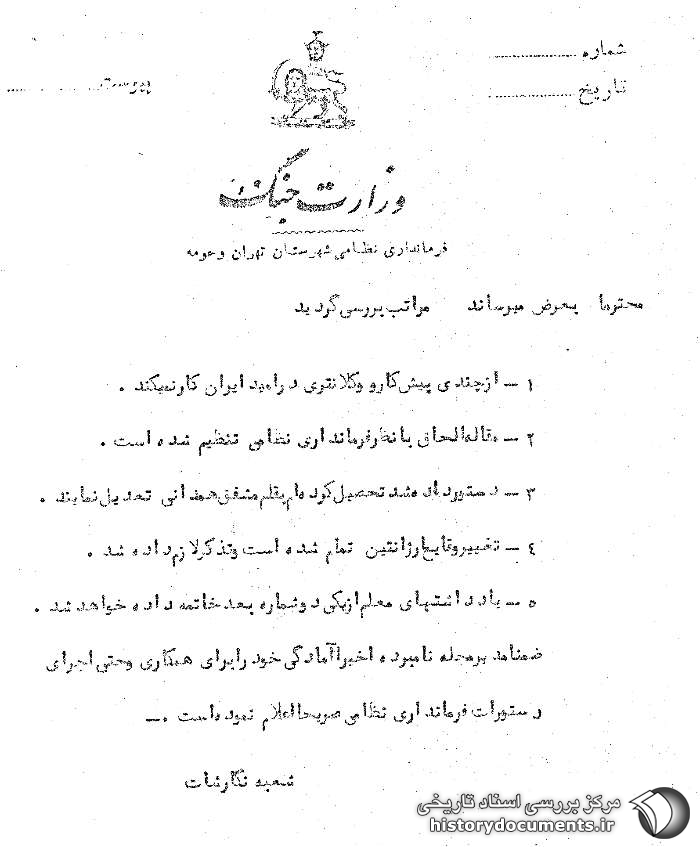 شماره
تاریخ
پیوست
وزارت جنگ
فرمانداری نظامی شهرستان تهران و حومه
محترما بعرض میرساند مراتب بررسی گردید
۱ – از چندی پیش کارو و کلانتری در امید ایران کار نمیکند .
۲ – مقاله الحاق با نظر فرمانداری نظامی تنظیم شده است .
۳ – دستور داده شد تحصیل کرده ام بقلم مشفق همدانی تعدیل نمایند .
٤ – تفسیر وقایع آرژانتین تمام شده است و تذکر لازم داده شد .
۵ – یادداشتهای معلم از یکی دو شماره بعد خاتمه داده خواهد شد .
ضمنا مدیر مجله نامبرده اخیرا آمادگی خود را برای همکاری و حتی اجرای
دستورات فرمانداری نظامی صریحا اعلام نموده است .–
شعبه نگارشات
مرکز بررسی اسناد تاریخی
historydocuments.ir